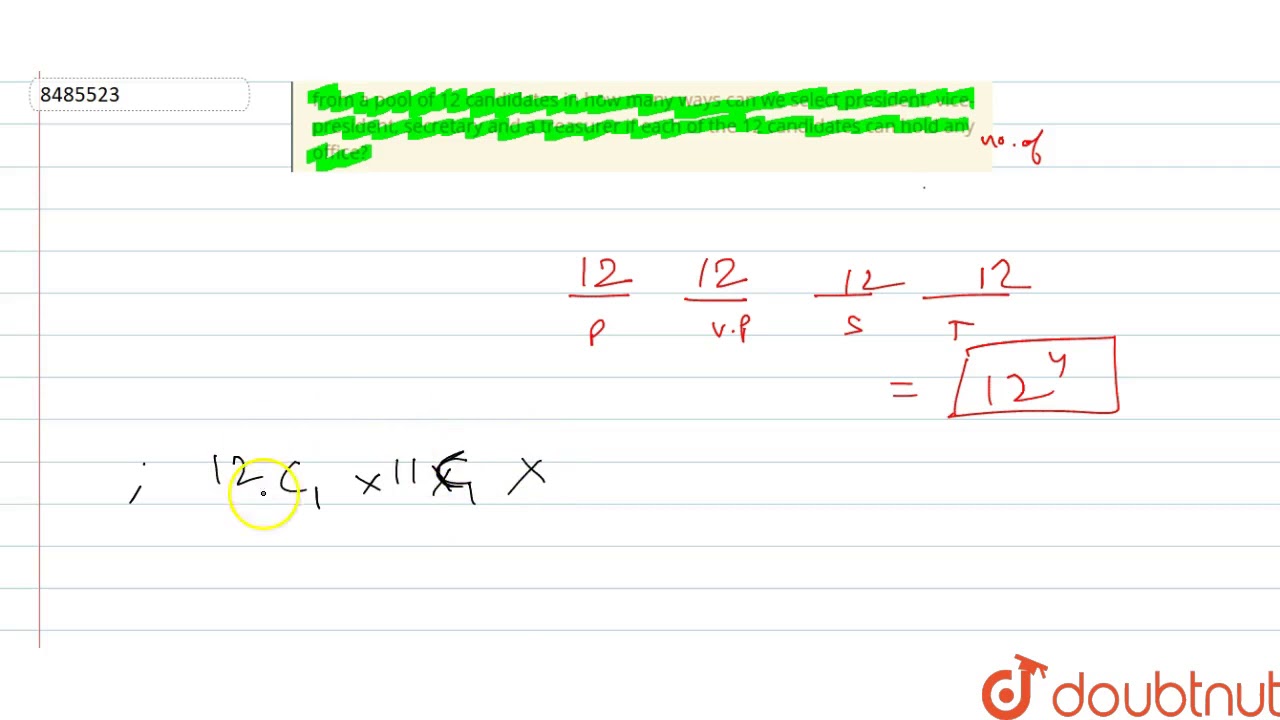 8485523
from a pool of 12 candidates in how many ways can we select president, vice
president, secretary and a treasurer if each of the 12 candidates can hold any
office?
no. of
12 12 12 12
P V.P S T
= 12^4
; 12C₁ × 11C₁ ×
doubtnut